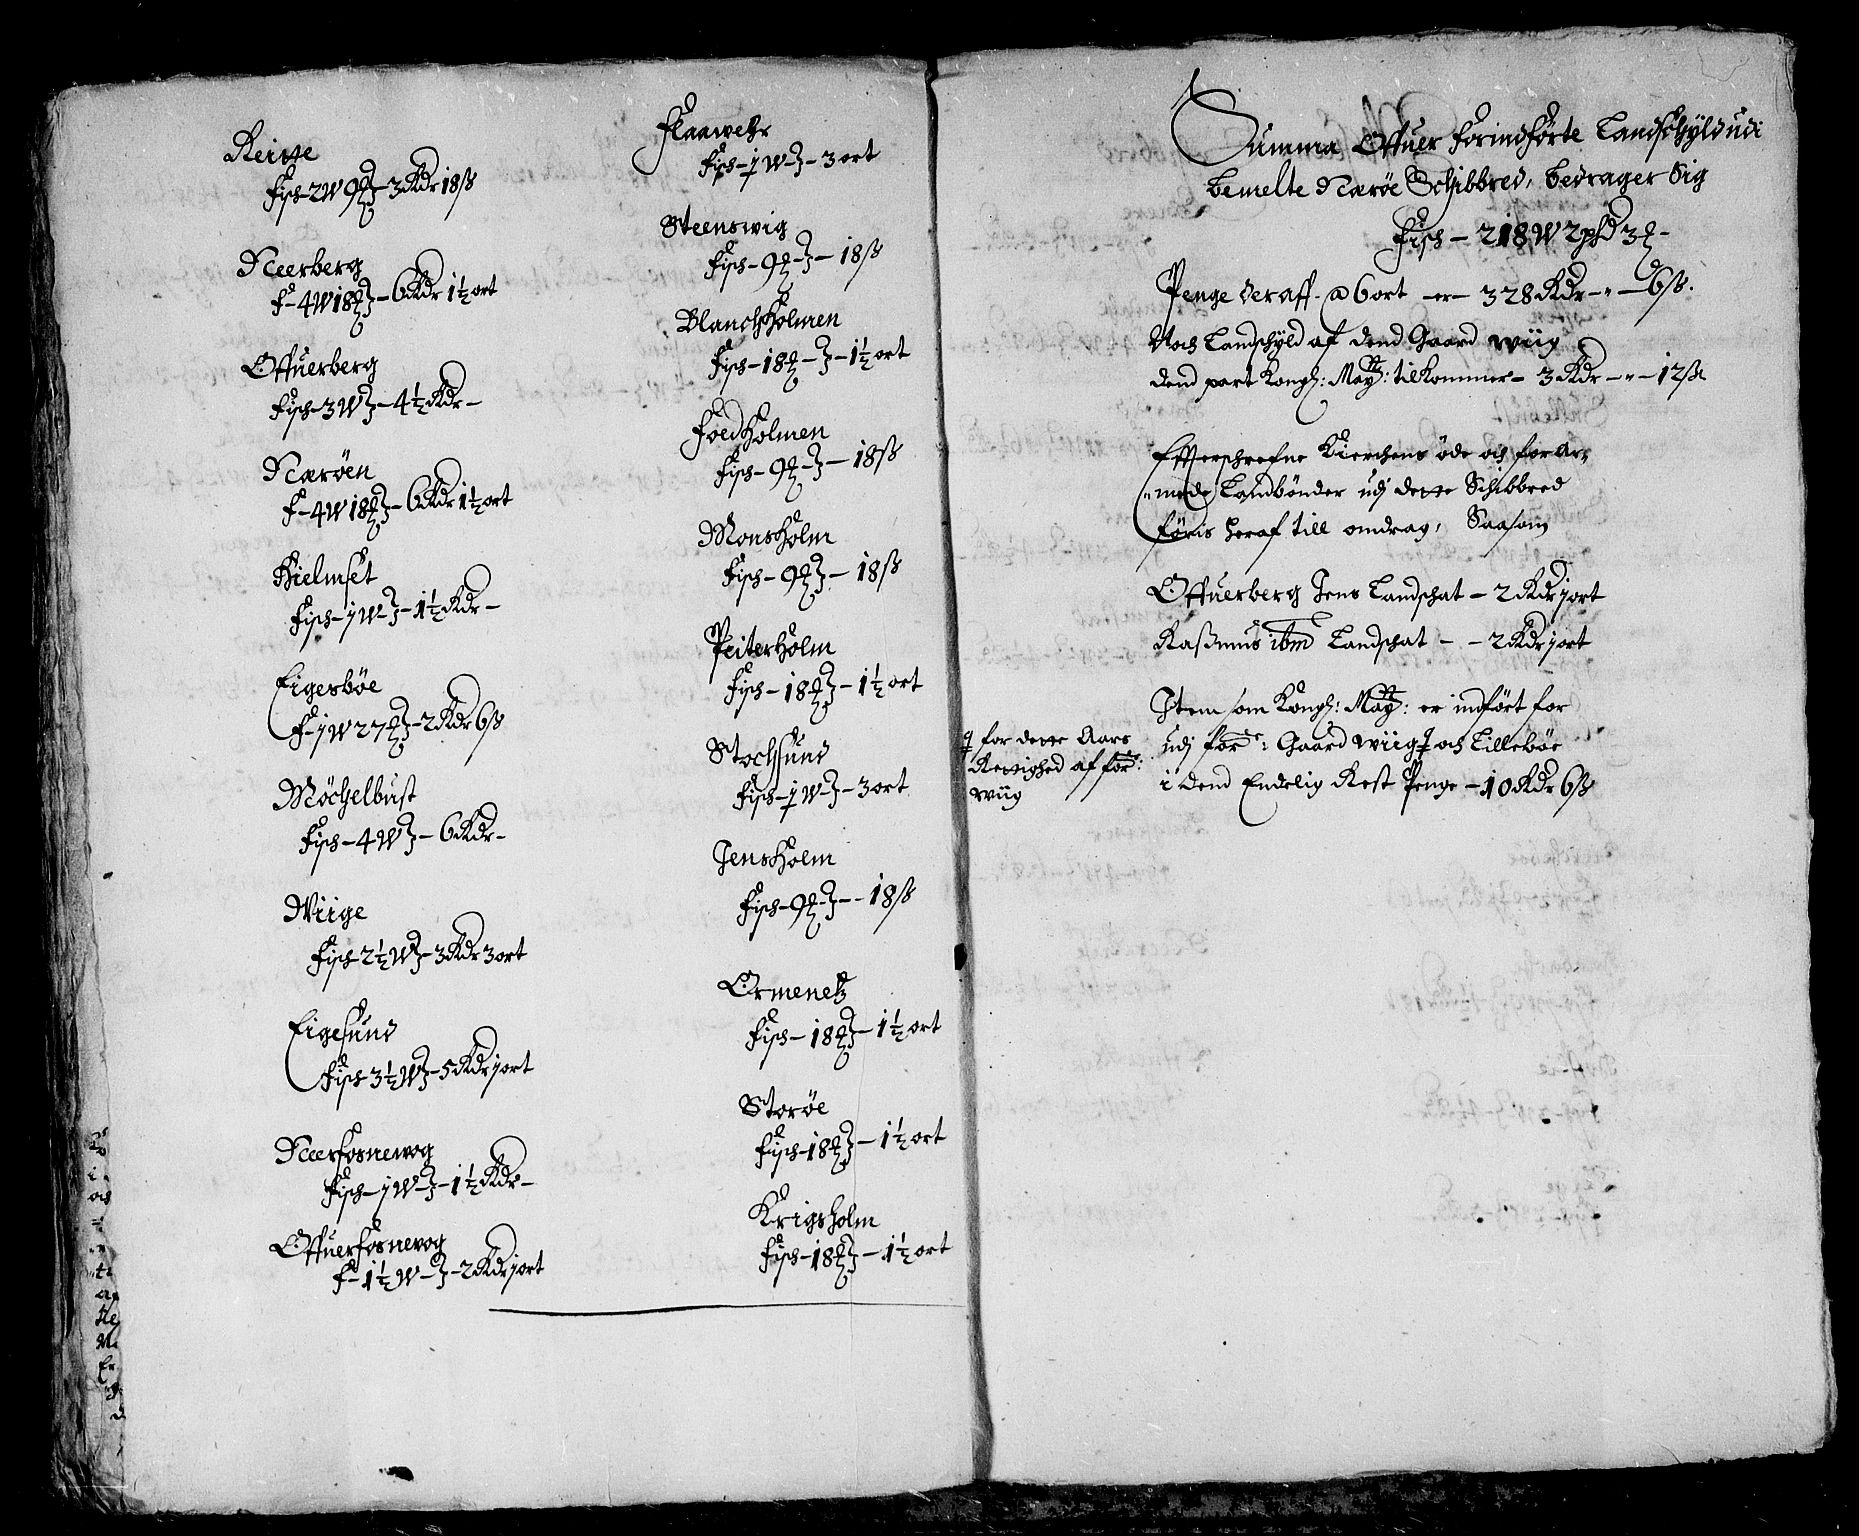 Reitte
Fisch-2W 9℔-3Rdr 18ß
Neerberg
F-4W 18℔-6Rdr 1½ ort
Offuerberg
Fisch-3W-4½ Rdr-
Nærøen
F-4W 18℔-6Rdr 1½ ort
Hielmset
Fisch-jW-1½ Rdr-
Eigesbøe
F-jW 27℔-2Rdr 6ß
Møchelbust
Fisch-4W-6Rdr-
Wiige
Fisch 2½W-3Rdr 3ort
Eigesund
Fisch 3½W-5Rdr jort
Neerfosnewog
Fisch-jW-1½ Rdr-
Offuerfosnewog
F-1½W-2Rdr jort
Flaawehr
Fisch-½W-3ort
Steenswig
Fisch-9℔-18ß
Blanchholmen
Fisch-18℔-1½ ort
Foedholmen
Fisch-9℔-18ß
Monsholm
Fisch-9℔-18ß
Peiterholm
Fisch-18℔-1½ ort
Stochsund
Fisch-½W-3ort
Jensholm
Fisch-9℔-18ß
Ormenetz
Fisch-18℔-1½ ort
Storøe
Fisch-18℔-1½ ort
Krigsholm
Fisch-18℔-1½ ort
Summa Offuer forindførte Landschyld udi
bemelte Nærøe Schibbred, bedrager Sig
Fisch-218W 2pfd 3℔-
Penge deraff @ 6ort -er- 328Rdr-"-6ß.
Noch Landschyld af dend Gaard Wiig
dend part Kongl: May: tilkommer-3Rdr-"-12ß
Effterschrefne Kierchens øde och forar-
"mede Landbønder udj dette Schibbred
føris heraf till omdrag, Saasom
Offuerberg Jens Landschat-2Rdr jort
Raßmus ibm Landschat--2Rdr jort
Item som Kongl: May: er indført for
udj forde: Gaard Wiig ╪ och Lillebøe
i dend Endelig Rest Penge-10Rdr 6ß
╪ for dette Aars
Rettighed af forde:
Wiig